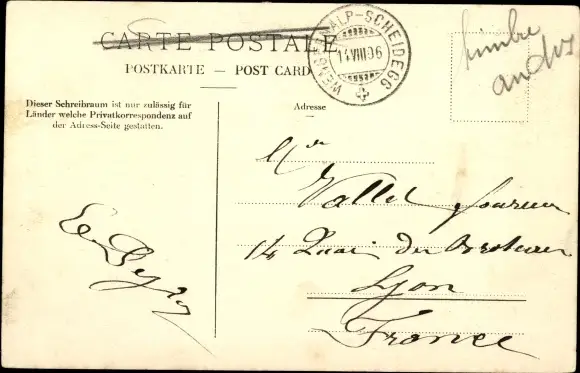 CARTE POSTALE
POSTKARTE – POST CARD
WENGERNALP-SCHEIDEGG
14 VIII 06
timbre
au dos
Dieser Schreibraum ist nur zulässig für
Länder welche Privatkorrespondenz auf
der Adress-Seite gestatten.
Adresse
Vallet
14 Quai du
Lyon
France